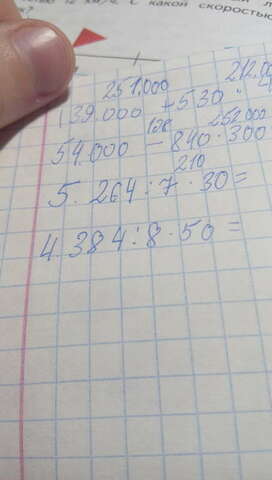 с какой скоростью
251.000 212.0
139.000 + 530
108 252.000
54.000 - 840 · 300
210
5. 264 : 7 · 30 =
4. 384 : 8 · 50 =